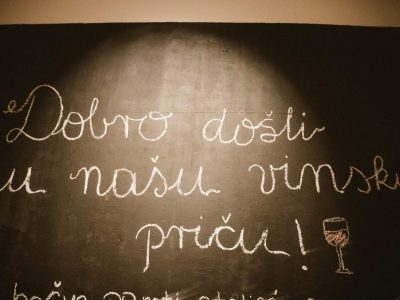 Dobro došli
u našu vinsku
priču!
bačva